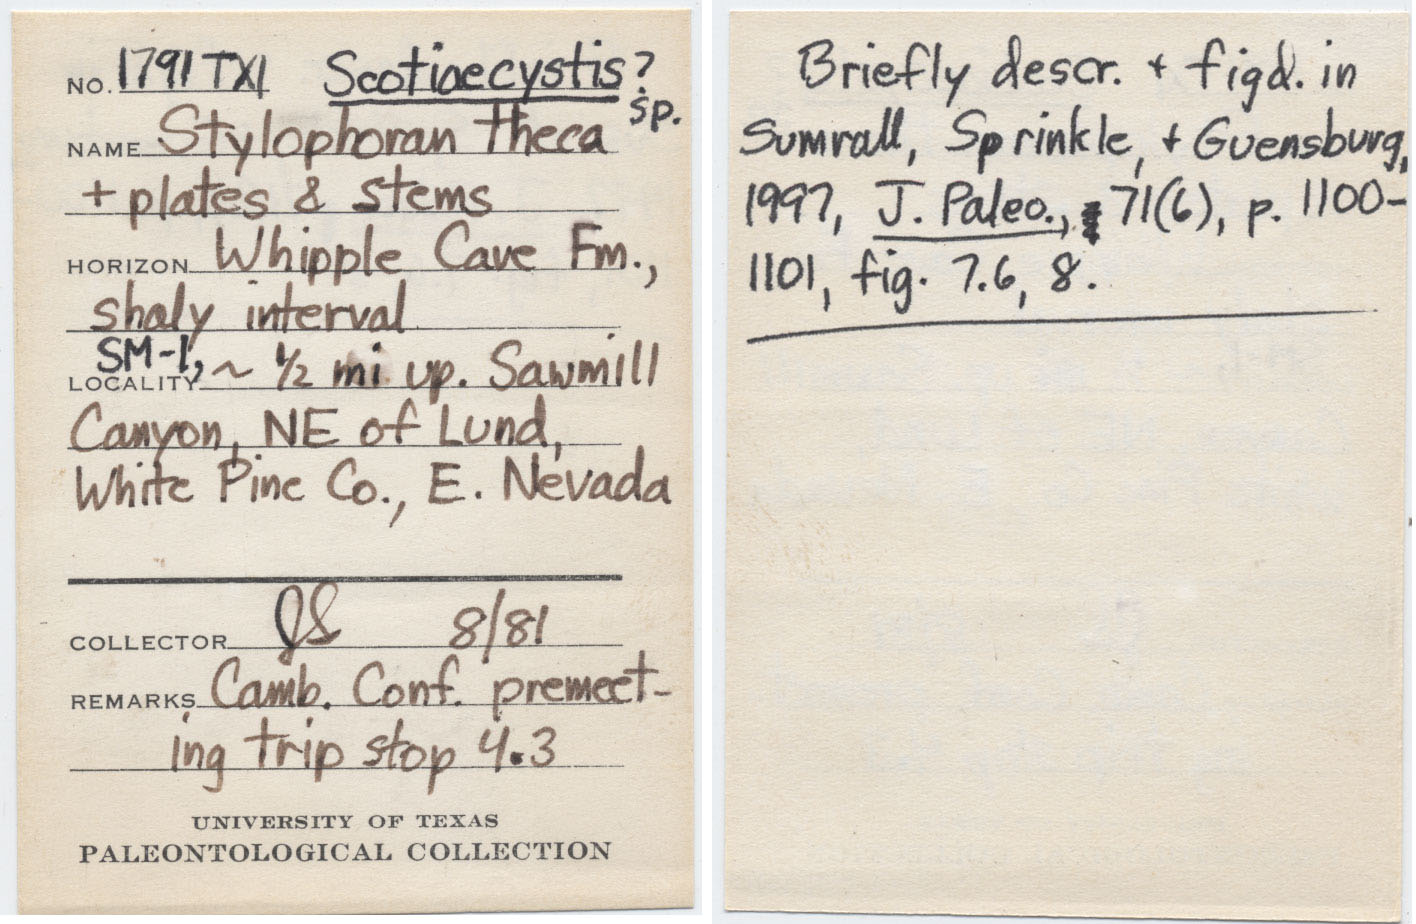 NO. 1791TX1 Scotiaecystis?
sp.
NAME Stylophoran theca
+ plates & stems
HORIZON Whipple Cave Fm.,
shaly interval
SM-1,
LOCALITY ~ 1/2 mi up. Sawmill
Canyon, NE of Lund,
White Pine Co., E. Nevada
COLLECTOR JS 8/81
REMARKS Camb. Conf. premeet-
ing trip stop 4.3
UNIVERSITY OF TEXAS
PALEONTOLOGICAL COLLECTION
Briefly descr. + figd. in
Sumrall, Sprinkle, + Guensburg,
1997, J. Paleo., 71(6), p. 1100-
1101, fig. 7.6, 8.